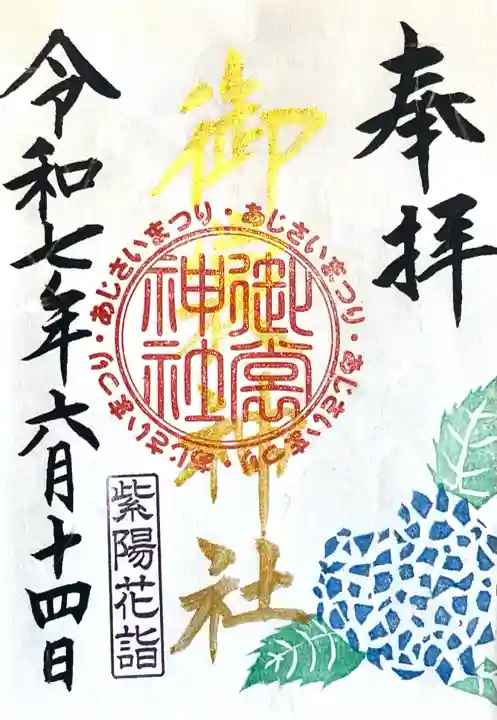 奉拝
御裳神社
あじさいまつり・あじさいまつり・あじさいまつり・あじさいまつり・
御裳
神社
紫陽花詣
令和七年六月十四日